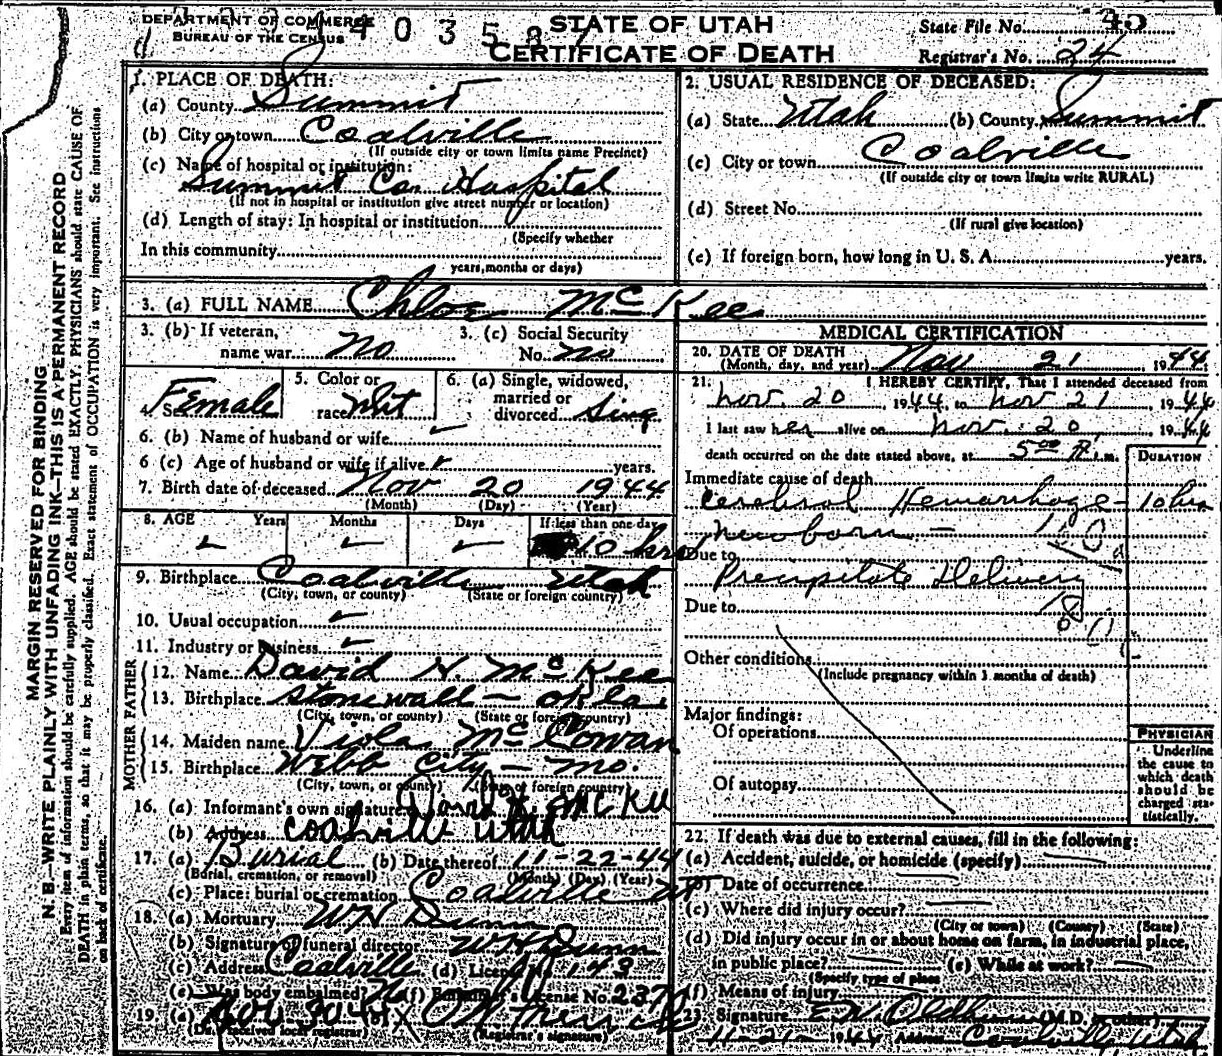 DEPARTMENT OF COMMERCE
BUREAU OF THE CENSUS
STATE OF UTAH
CERTIFICATE OF DEATH
State File No. 45
Registrar's No. 24
MARGIN RESERVED FOR BINDING
N. B.—WRITE PLAINLY WITH UNFADING INK—THIS IS A PERMANENT RECORD
Every item of information should be carefully supplied. AGE should be stated EXACTLY. PHYSICIANS should state CAUSE OF
DEATH in plain terms, so that it may be properly classified. Exact statement of OCCUPATION is very important. See instructions
on back of certificate.
1. PLACE OF DEATH:
(a) County Summit
(b) City or town Coalville
(If outside city or town limits name Precinct)
(c) Name of hospital or institution:
Summit Co. Hospital
(If not in hospital or institution give street number or location)
(d) Length of stay: In hospital or institution
(Specify whether
In this community
years, months or days)
2. USUAL RESIDENCE OF DECEASED:
(a) State Utah (b) County Summit
(c) City or town Coalville
(If outside city or town limits write RURAL)
(d) Street No.
(If rural give location)
(e) If foreign born, how long in U. S. A. years.
3. (a) FULL NAME Chloe McKee
3. (b) If veteran, name war No
3. (c) Social Security No. no
4. Sex Female
5. Color or race Whit
6. (a) Single, widowed, married or divorced Sing
6. (b) Name of husband or wife
6 (c) Age of husband or wife if alive years.
7. Birth date of deceased Nov 20 1944
(Month) (Day) (Year)
8. AGE Years Months Days If less than one day
10 hrs
9. Birthplace Coalville Utah
(City, town, or county) (State or foreign country)
10. Usual occupation
11. Industry or Business
FATHER
12. Name David H. McKee
13. Birthplace Stonewall — Okla.
(City, town, or county) (State or foreign country)
MOTHER
14. Maiden name Viola McCowan
15. Birthplace Webb City — Mo.
(City, town, or county) (State or foreign country)
16. (a) Informant's own signature David H. McKee
(b) Address Coalville Utah
17. (a) Burial (b) Date thereof 11-22-44
(Burial, cremation, or removal) (Month) (Day) (Year)
(c) Place: burial or cremation Coalville Ut
18. (a) Mortuary W H Dunn
(b) Signature of funeral director W H Dunn
(c) Address Coalville (d) License No. 143
(e) Was body embalmed No (f) Embalmer's License No. 237
19. (a) Nov 30
(Date received local registrar) (Registrar's signature)
MEDICAL CERTIFICATION
20. DATE OF DEATH Nov 21 1944
(Month, day, and year)
21. I HEREBY CERTIFY, That I attended deceased from
Nov. 20, 1944, to Nov 21, 1944
I last saw her alive on Nov. 20, 1944
death occurred on the date stated above, at 5:00 A.m.
DURATION
Immediate cause of death
Cerebral Hemorrhage — 10 hrs
newborn —
Due to
Precipitate Delivery
Due to
Other conditions
(Include pregnancy within 3 months of death)
Major findings:
Of operations
Of autopsy
PHYSICIAN
Underline
the cause to
which death
should be
charged sta-
tistically.
22. If death was due to external causes, fill in the following:
(a) Accident, suicide, or homicide (specify)
(b) Date of occurrence
(c) Where did injury occur?
(City or town) (County) (State)
(d) Did injury occur in or about home on farm, in industrial place,
in public place? (e) While at work?
(Specify type of place
(f) Means of injury
23. Signature E. W. Oldham (M.D. or other)
11-21-1944 Address Coalville, Utah